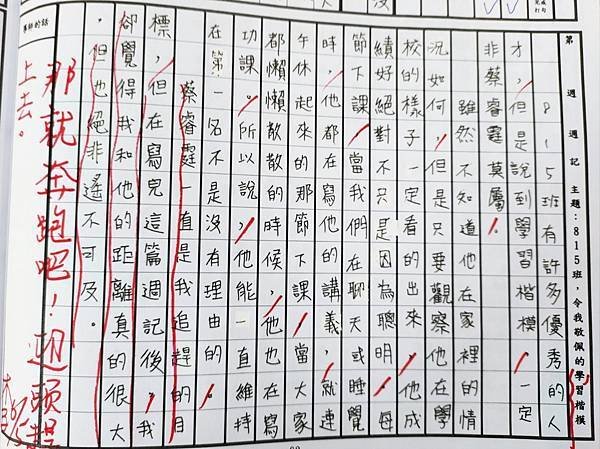 第　週 週記 主題：815班，令我敬佩的學習楷模
815班有許多優秀的人
才，但是說到學習楷模，一定
非蔡睿霆莫屬。
雖然不知道他在家裡的情
況如何，但是只要觀察他在學
校的樣子，一定看的出來，他成
績好絕對不只是因為聰明，每
節下課，當我們在聊天或睡覺
時，他都在寫講義，就連
午休起來的那節下課，當大家
都懶懶散散的時候，他也在寫
功課。所以說，他能一直維持
在第一名不是沒有理由的。
蔡睿霆一直是我追趕的目
標，但在寫完這篇週記後，我
卻覺得我和他的距離真的很大
，但也絕非遙不可及。
導師的話
那就奔跑吧！迎頭趕
上去。